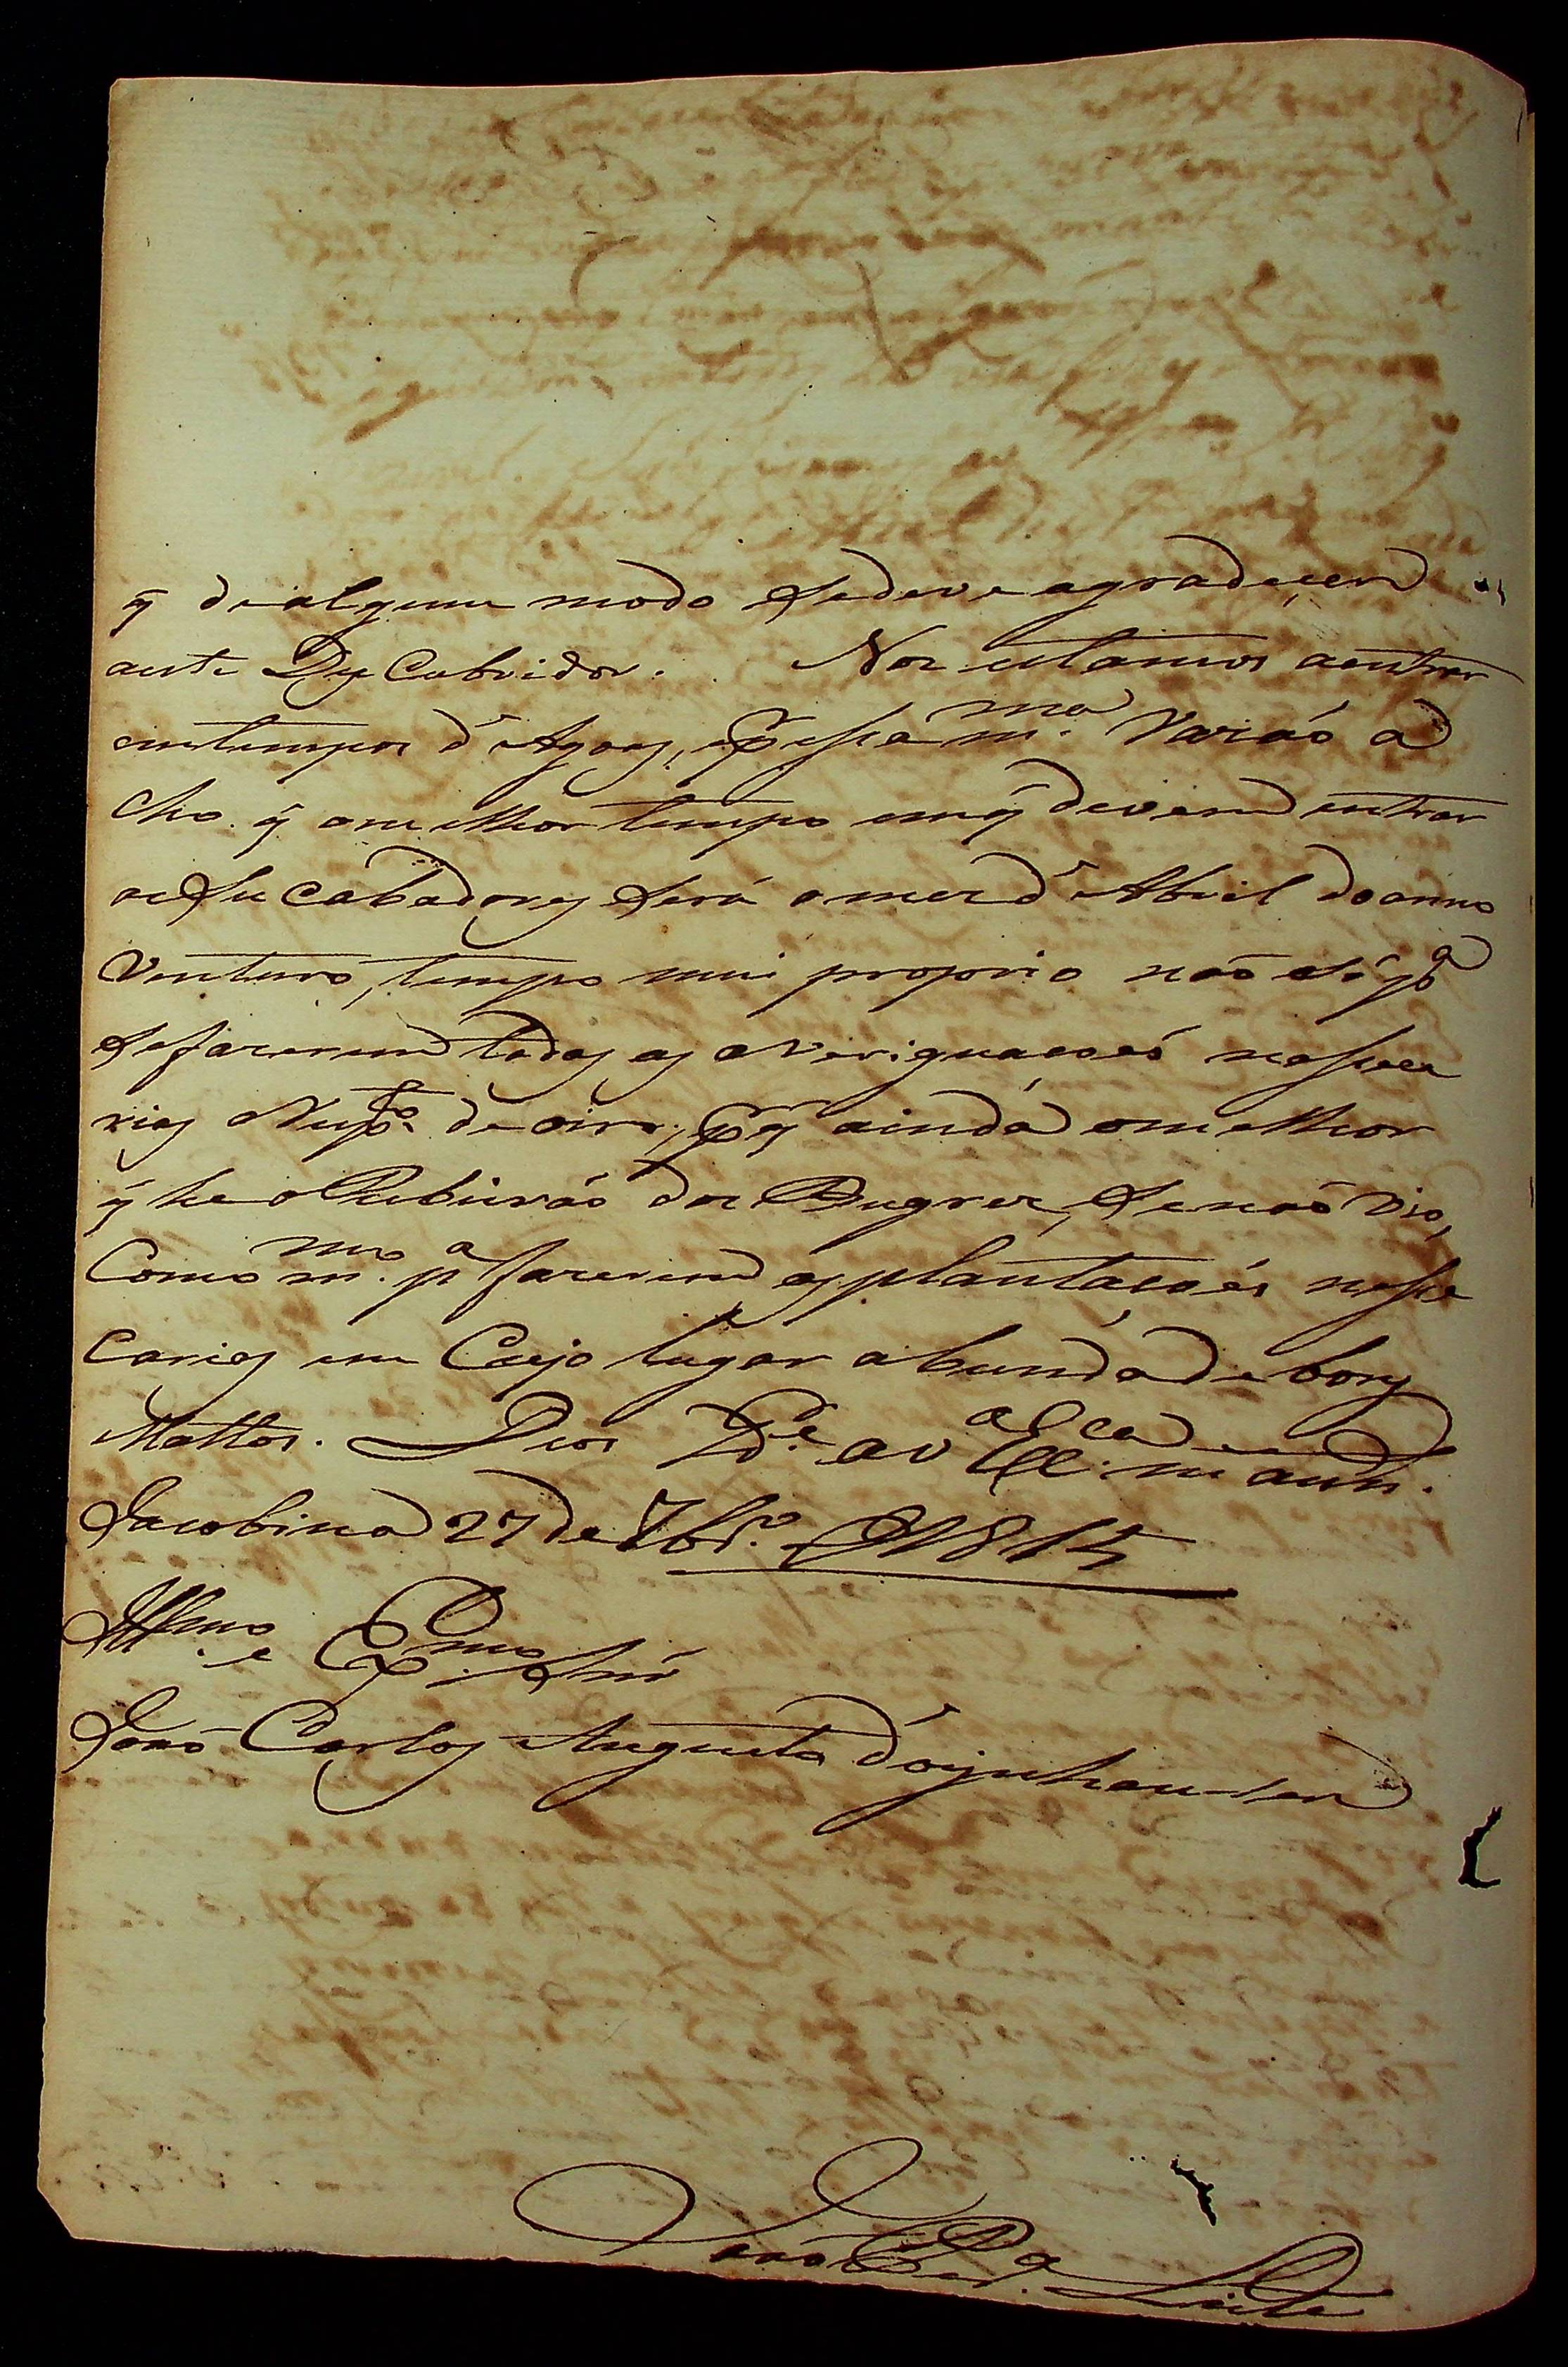 q̃ de algum modo Se deve agradecer
a este DesCubridor. Nos estamos a entrar
em tempos d'Agoas, e p̃ essa m.ma razaõ a
cho q̃ o melhor tempo em q̃ devem entrar
os Sucabadores Será o mez d'Abril do anno
Venturo, tempo mui proprio naõ só p.a
Se fazerem todas as averiguacoẽs nessea
rias de oiro, p̃ q̃ ainda o melhor
q̃ he o Ribeiraõ dos Bugres, Se naõ vio,
Como m.mo p.a fazerem as plantacoẽs nesse
Carias em Cujo lugar abunda de bons
Mattos. Deos G.de a V Ex.ca m. ann.
Jacobina 27 de 7br.o de 1815
Ill.mo e Ex.mo Snr̃
Joaõ Carlos Augusto d'Oeynhausen
Joaõ Per.a Leite